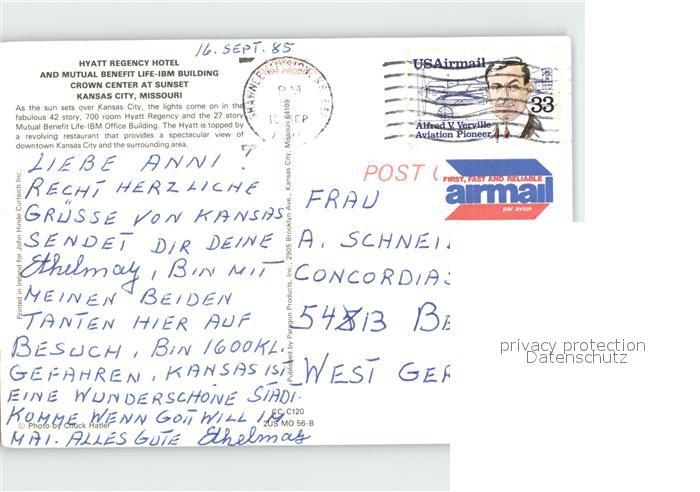 16. SEPT. 85
HYATT REGENCY HOTEL
AND MUTUAL BENEFIT LIFE-IBM BUILDING
CROWN CENTER AT SUNSET
KANSAS CITY, MISSOURI
As the sun sets over Kansas City, the lights come on in the
fabulous 42 story, 700 room Hyatt Regency and the 27 story
Mutual Benefit Life-IBM Office Building. The Hyatt is topped by
a revolving restaurant that provides a spectacular view of
downtown Kansas City and the surrounding area.
LIEBE ANNI!
RECHT HERZLICHE
GRÜSSE VON KANSAS
SENDET DIR DEINE
Ethelmay, BIN MIT
MEINEN BEIDEN
TANTEN HIER AUF
BESUCH, BIN 1600KL.
GEFAHREN, KANSAS IST
EINE WUNDERSCHÖNE STADT.
KOMME WENN GOTT WILL IM
MAI. ALLES GUTE Ethelmay
© Photo by Chuck Hatler
CC C120
2US MO 56-B
Printed in Ireland for John Hinde Curteich Inc.
Published by Paragon Products, Inc., 2905 Brooklyn Ave., Kansas City, Missouri 64109
PM
SEP
USAirmail
33
Alfred V. Verville
Aviation Pioneer
POST
FIRST, FAST AND RELIABLE
airmail
par avion
FRAU
A. SCHNEI
CONCORDIAS
54813 BE
WEST GER
privacy protection
Datenschutz